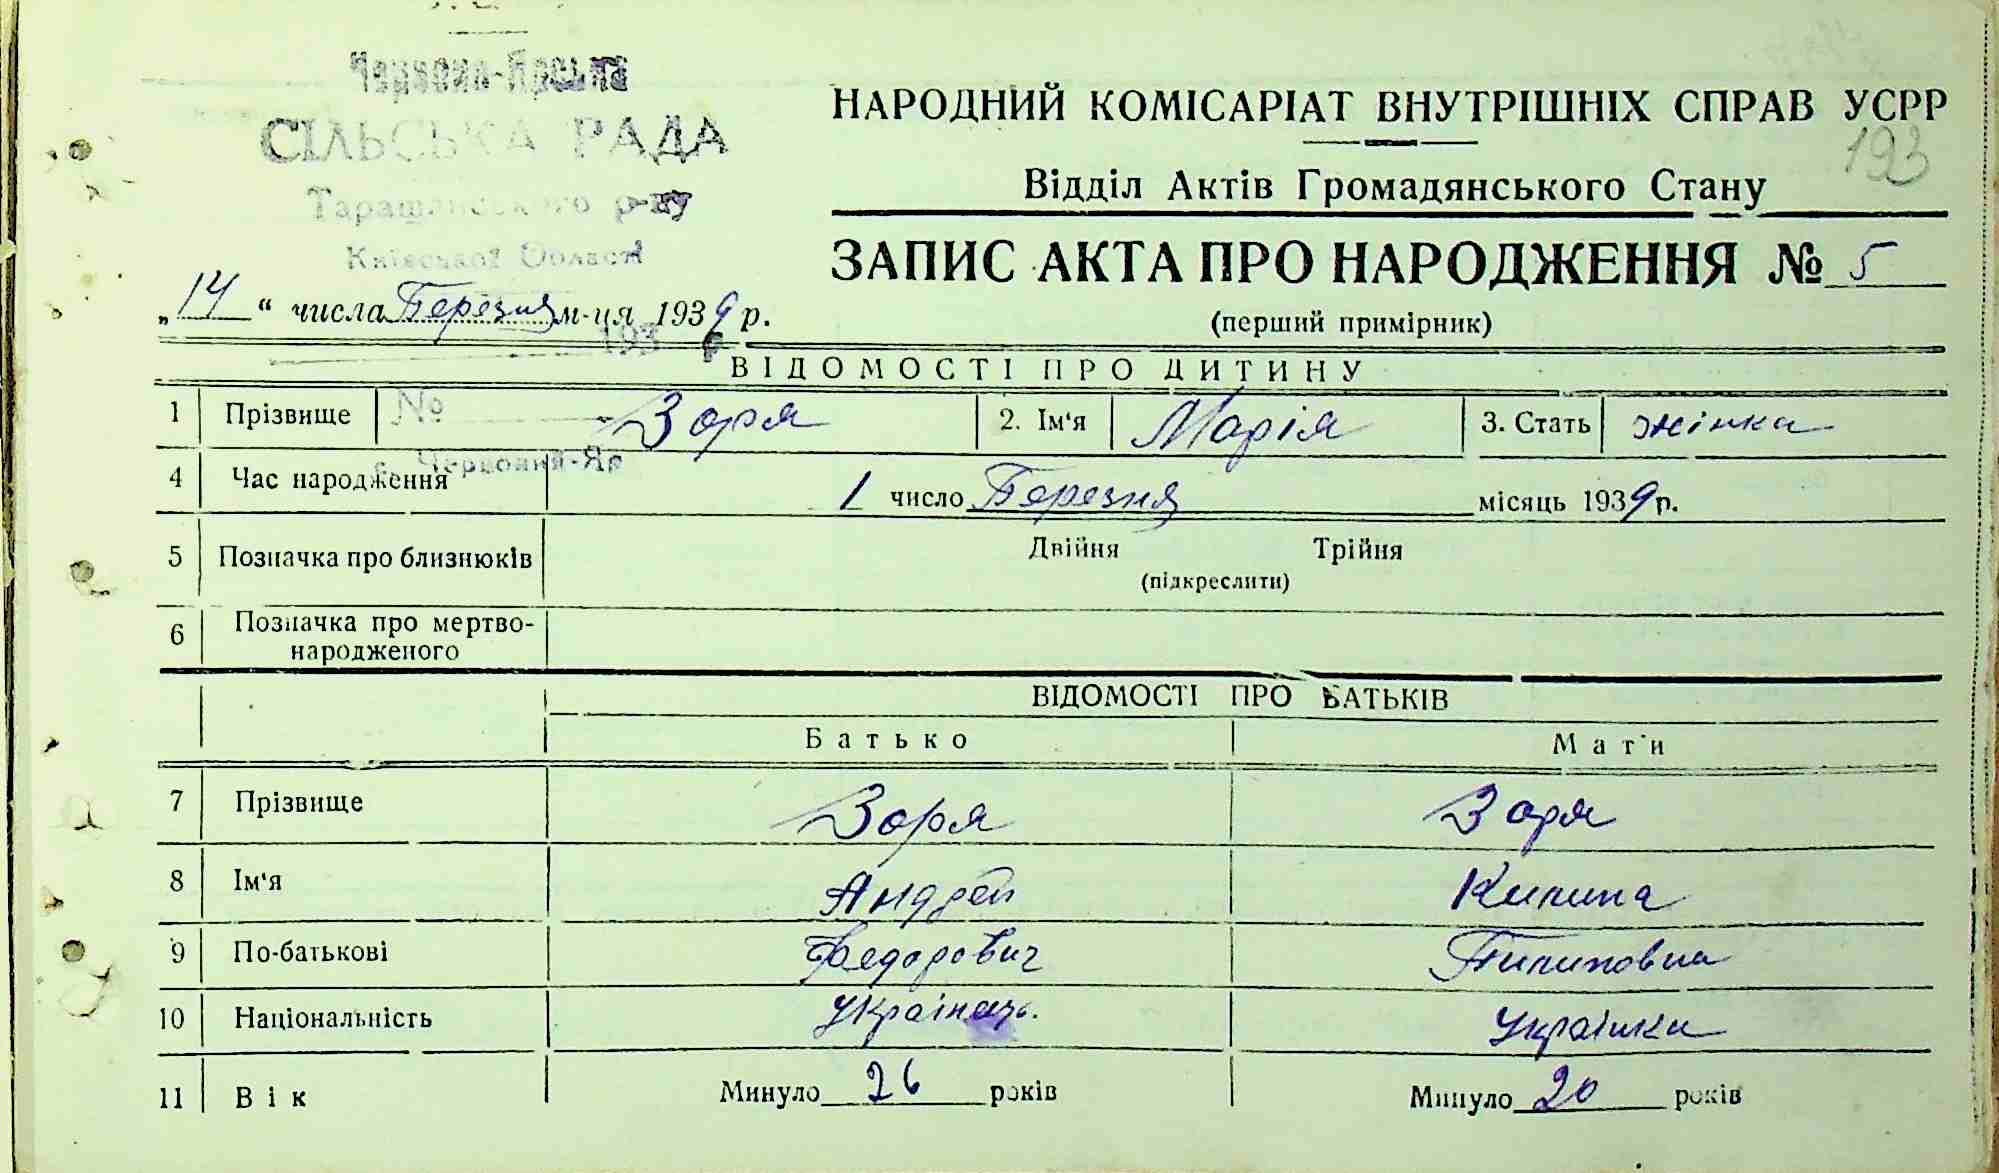 СІЛЬСЬКА РАДА
Таращанського р-ну
Київської Області
НАРОДНИЙ КОМІСАРІАТ ВНУТРІШНІХ СПРАВ УСРР
193
Відділ Актів Громадянського Стану
ЗАПИС АКТА ПРО НАРОДЖЕННЯ № 5
„14“ числа Березня м-ця 1939 р.
(перший примірник)
193
ВІДОМОСТІ ПРО ДИТИНУ
1 Прізвище № Зоря 2. Ім‘я Марія 3. Стать жінка
с. Червоний-Яр
4 Час народження 1 число Березня місяць 1939 р.
5 Позначка про близнюків Двійня Трійня
(підкреслити)
6 Позначка про мертво-
народженого
ВІДОМОСТІ ПРО БАТЬКІВ
Батько Мати
7 Прізвище Зоря Зоря
8 Ім‘я Андрей Килина
9 По-батькові Федорович Пилиповна
10 Національність Українець. Українка
11 Вік Минуло 26 років Минуло 20 років